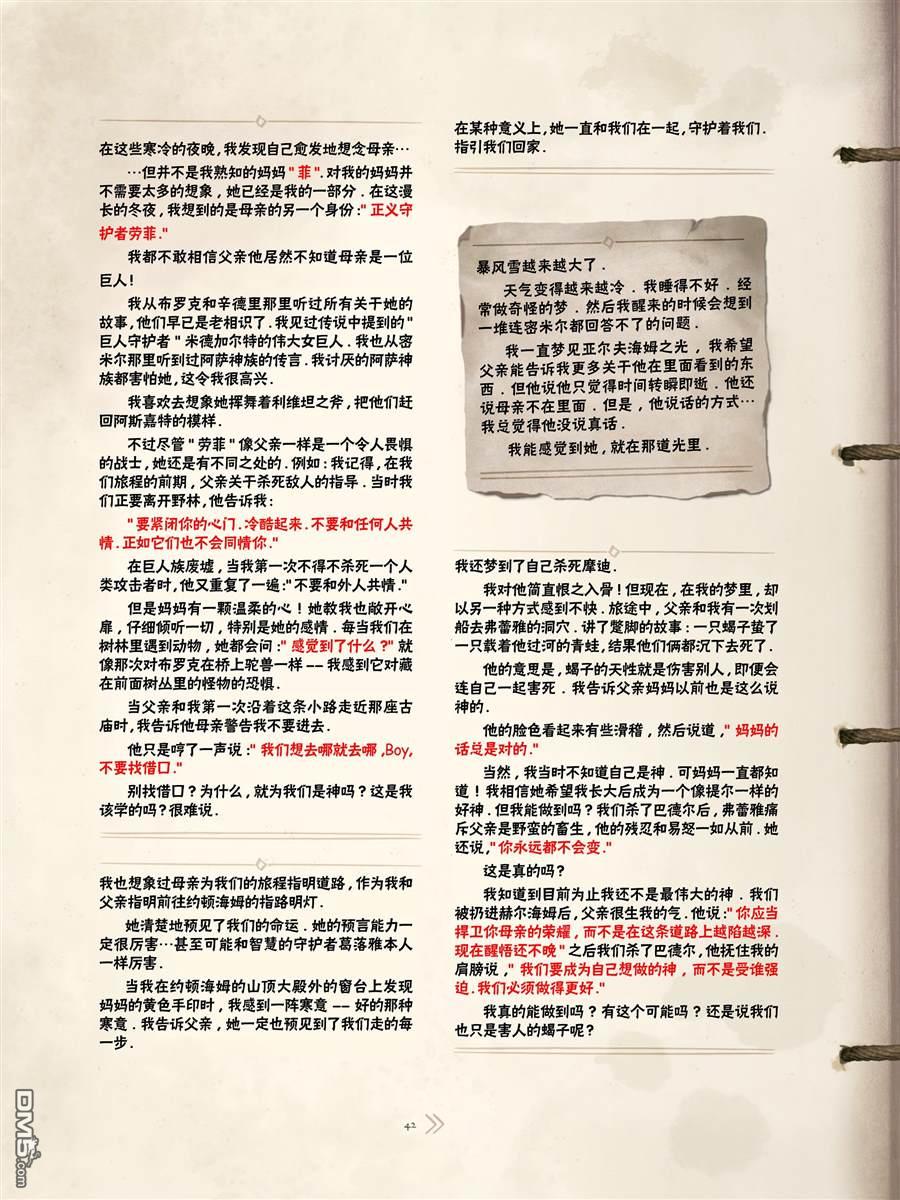 在这些寒冷的夜晚,我发现自己愈发地想念母亲…
…但并不是我熟知的妈妈"菲".对我的妈妈并
不需要太多的想象,她已经是我的一部分.在这漫
长的冬夜,我想到的是母亲的另一个身份:"正义守
护者劳菲."
我都不敢相信父亲他居然不知道母亲是一位
巨人!
我从布罗克和辛德里那里听过所有关于她的
故事,他们早已是老相识了.我见过传说中提到的"
巨人守护者"米德加尔特的伟大女巨人.我也从密
米尔那里听到过阿萨神族的传言.我讨厌的阿萨神
族都害怕她,这令我很高兴.
我喜欢去想象她挥舞着利维坦之斧,把他们赶
回阿斯嘉特的模样.
不过尽管"劳菲"像父亲一样是一个令人畏惧
的战士,她还是有不同之处的.例如:我记得,在我
们旅程的前期,父亲关于杀死敌人的指导.当时我
们正要离开野林,他告诉我:
"要紧闭你的心门.冷酷起来.不要和任何人共
情.正如它们也不会同情你."
在巨人族废墟,当我第一次不得不杀死一个人
类攻击者时,他又重复了一遍:"不要和外人共情."
但是妈妈有一颗温柔的心!她教我也敞开心
扉,仔细倾听一切,特别是她的感情.每当我们在
树林里遇到动物,她都会问:"感觉到了什么?"就
像那次对布罗克在桥上驼兽一样——我感到它对藏
在前面树丛里的怪物的恐惧.
当父亲和我第一次沿着这条小路走近那座古
庙时,我告诉他母亲警告我不要进去.
他只是哼了一声说:"我们想去哪就去哪,Boy,
不要找借口."
别找借口?为什么,就为我们是神吗?这是我
该学的吗?很难说.
我也想象过母亲为我们的旅程指明道路,作为我和
父亲指明前往约顿海姆的指路明灯.
她清楚地预见了我们的命运.她的预言能力一
定很厉害…甚至可能和智慧的守护者葛洛雅本人
一样厉害.
当我在约顿海姆的山顶大殿外的窗台上发现
妈妈的黄色手印时,我感到一阵寒意——好的那种
寒意.我告诉父亲,她一定也预见到了我们走的每
一步.
在某种意义上,她一直和我们在一起,守护着我们.
指引我们回家.
暴风雪越来越大了.
天气变得越来越冷.我睡得不好.经
常做奇怪的梦.然后我醒来的时候会想到
一堆连密米尔都回答不了的问题.
我一直梦见亚尔夫海姆之光,我希望
父亲能告诉我更多关于他在里面看到的东
西.但他说他只觉得时间转瞬即逝.他还
说母亲不在里面.但是,他说话的方式…
我总觉得他没说真话.
我能感觉到她,就在那道光里.
我还梦到了自己杀死摩迪.
我对他简直恨之入骨!但现在,在我的梦里,却
以另一种方式感到不快.旅途中,父亲和我有一次划
船去弗蕾雅的洞穴.讲了蹩脚的故事:一只蝎子蛰了
一只载着他过河的青蛙,结果他们俩都沉下去死了.
他的意思是,蝎子的天性就是伤害别人,即便会
连自己一起害死.我告诉父亲妈妈以前也是这么说
神的.
他的脸色看起来有些滑稽,然后说道,"妈妈的
话总是对的."
当然,我当时不知道自己是神.可妈妈一直都知
道!我相信她希望我长大后成为一个像提尔一样的
好神.但我能做到吗?我们杀了巴德尔后,弗蕾雅痛
斥父亲是野蛮的畜生,他的残忍和易怒一如从前.她
还说,"你永远都不会变."
这是真的吗?
我知道到目前为止我还不是最伟大的神.我们
被扔进赫尔海姆后,父亲很生我的气.他说:"你应当
捍卫你母亲的荣耀,而不是在这条道路上越陷越深.
现在醒悟还不晚"之后我们杀了巴德尔,他抚住我的
肩膀说,"我们要成为自己想做的神,而不是受谁强
迫.我们必须做得更好."
我真的能做到吗?有这个可能吗?还是说我们
也只是害人的蝎子呢?
42
DM5.com